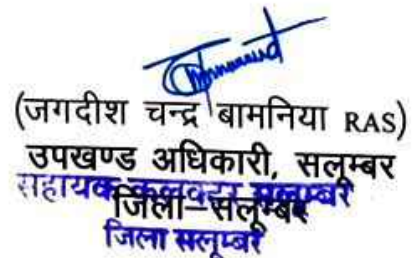 (जगदीश चन्द्र बामनिया RAS)
उपखण्ड अधिकारी, सलूम्बर
सहायक कलक्टर सलूम्बर
जिला–सलूम्बर
जिला सलूम्बर